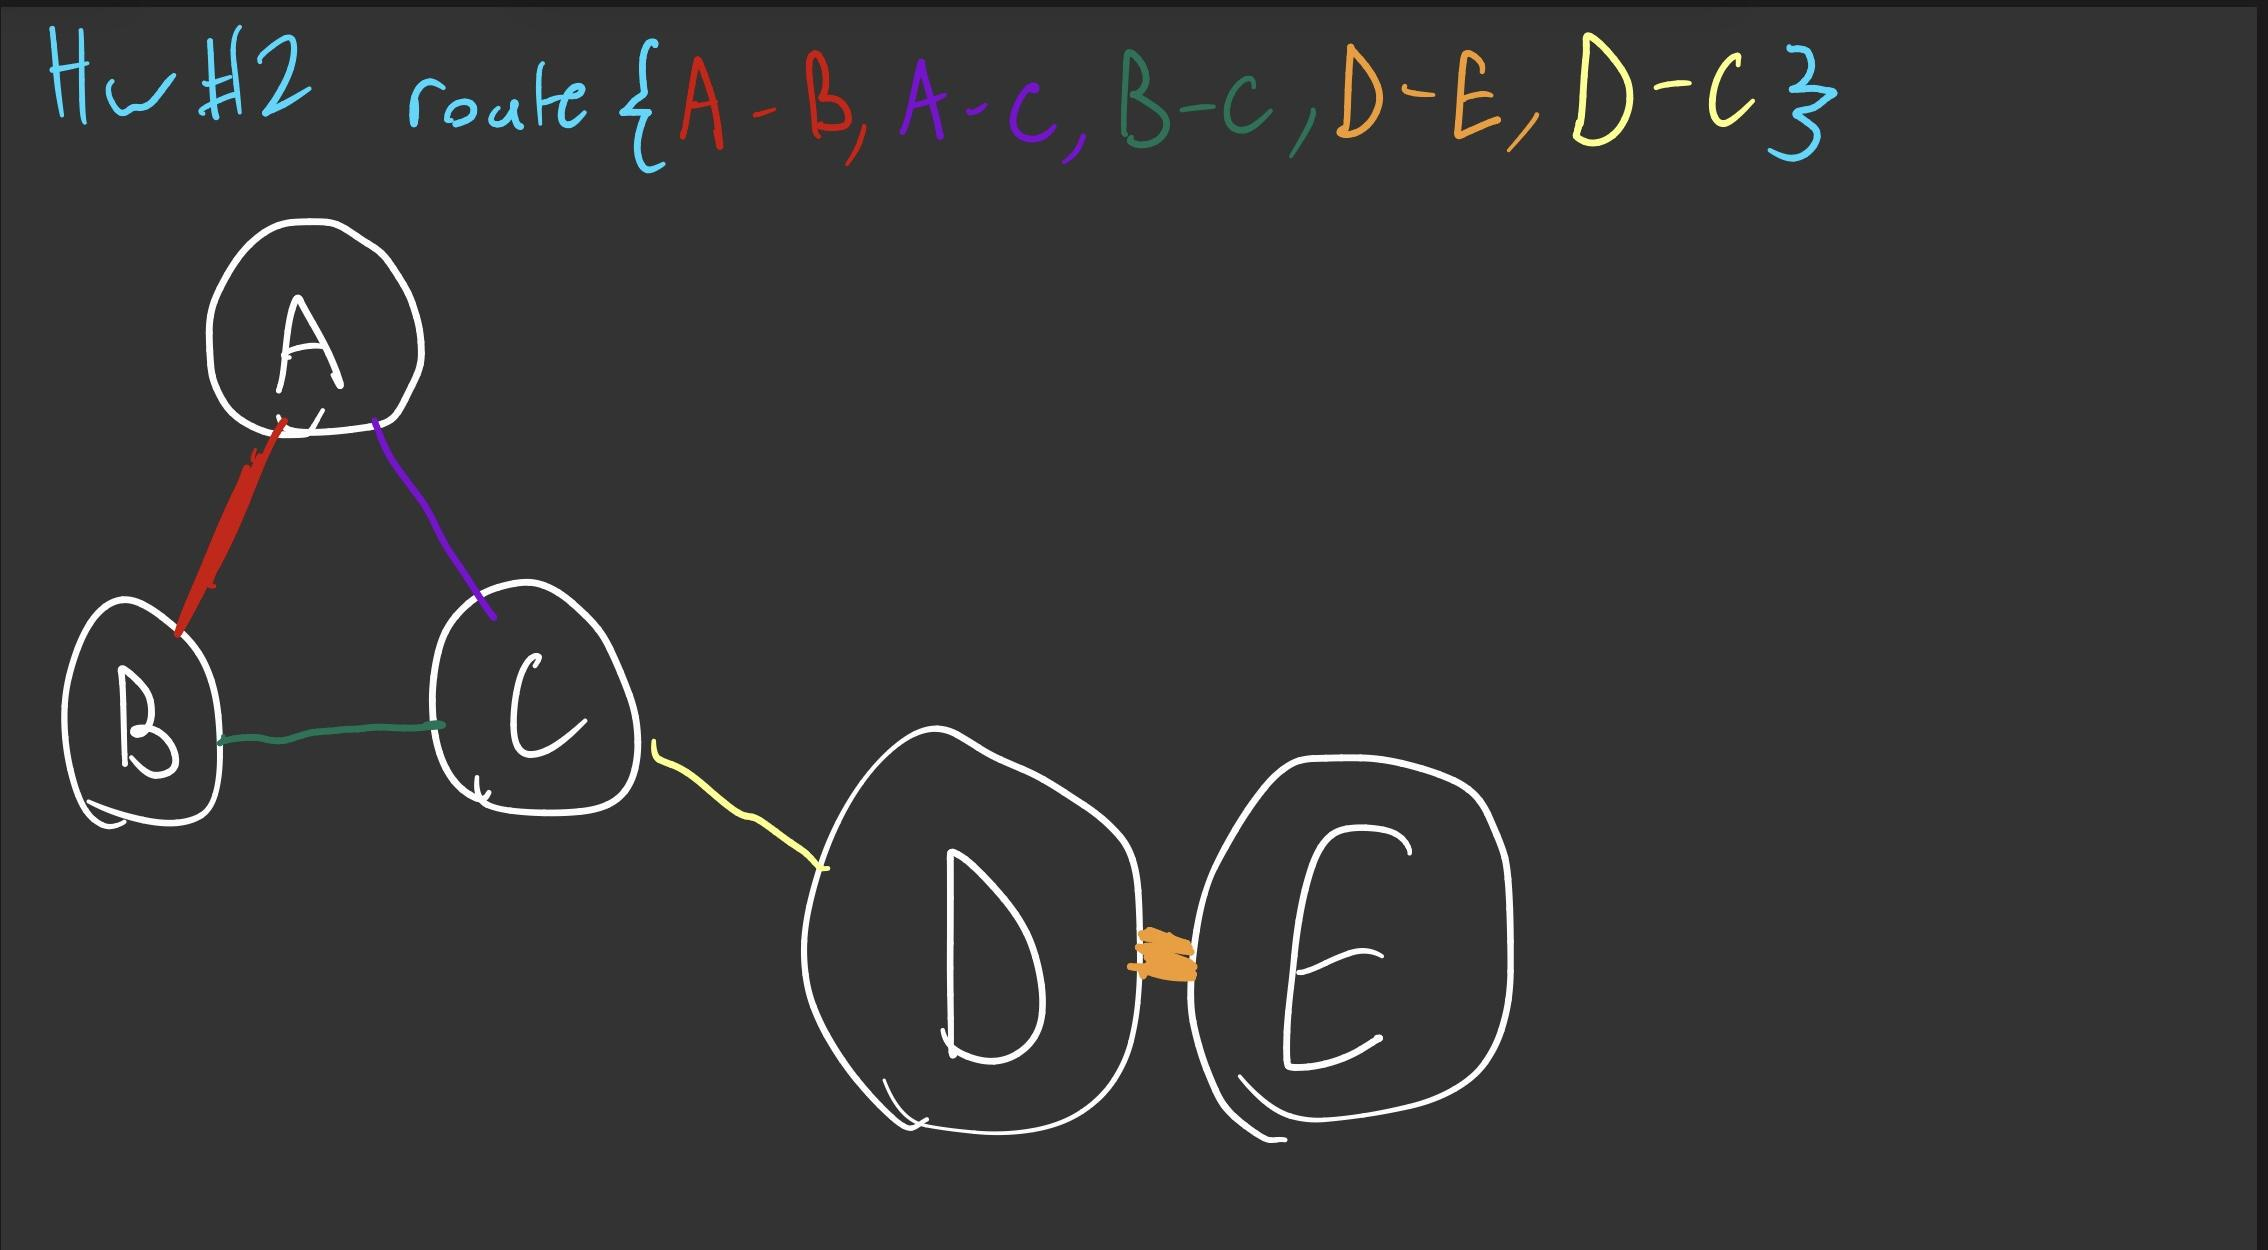 Hw #2 route {A-B, A-C, B-C, D-E, D-C}
A
B
C
D
E